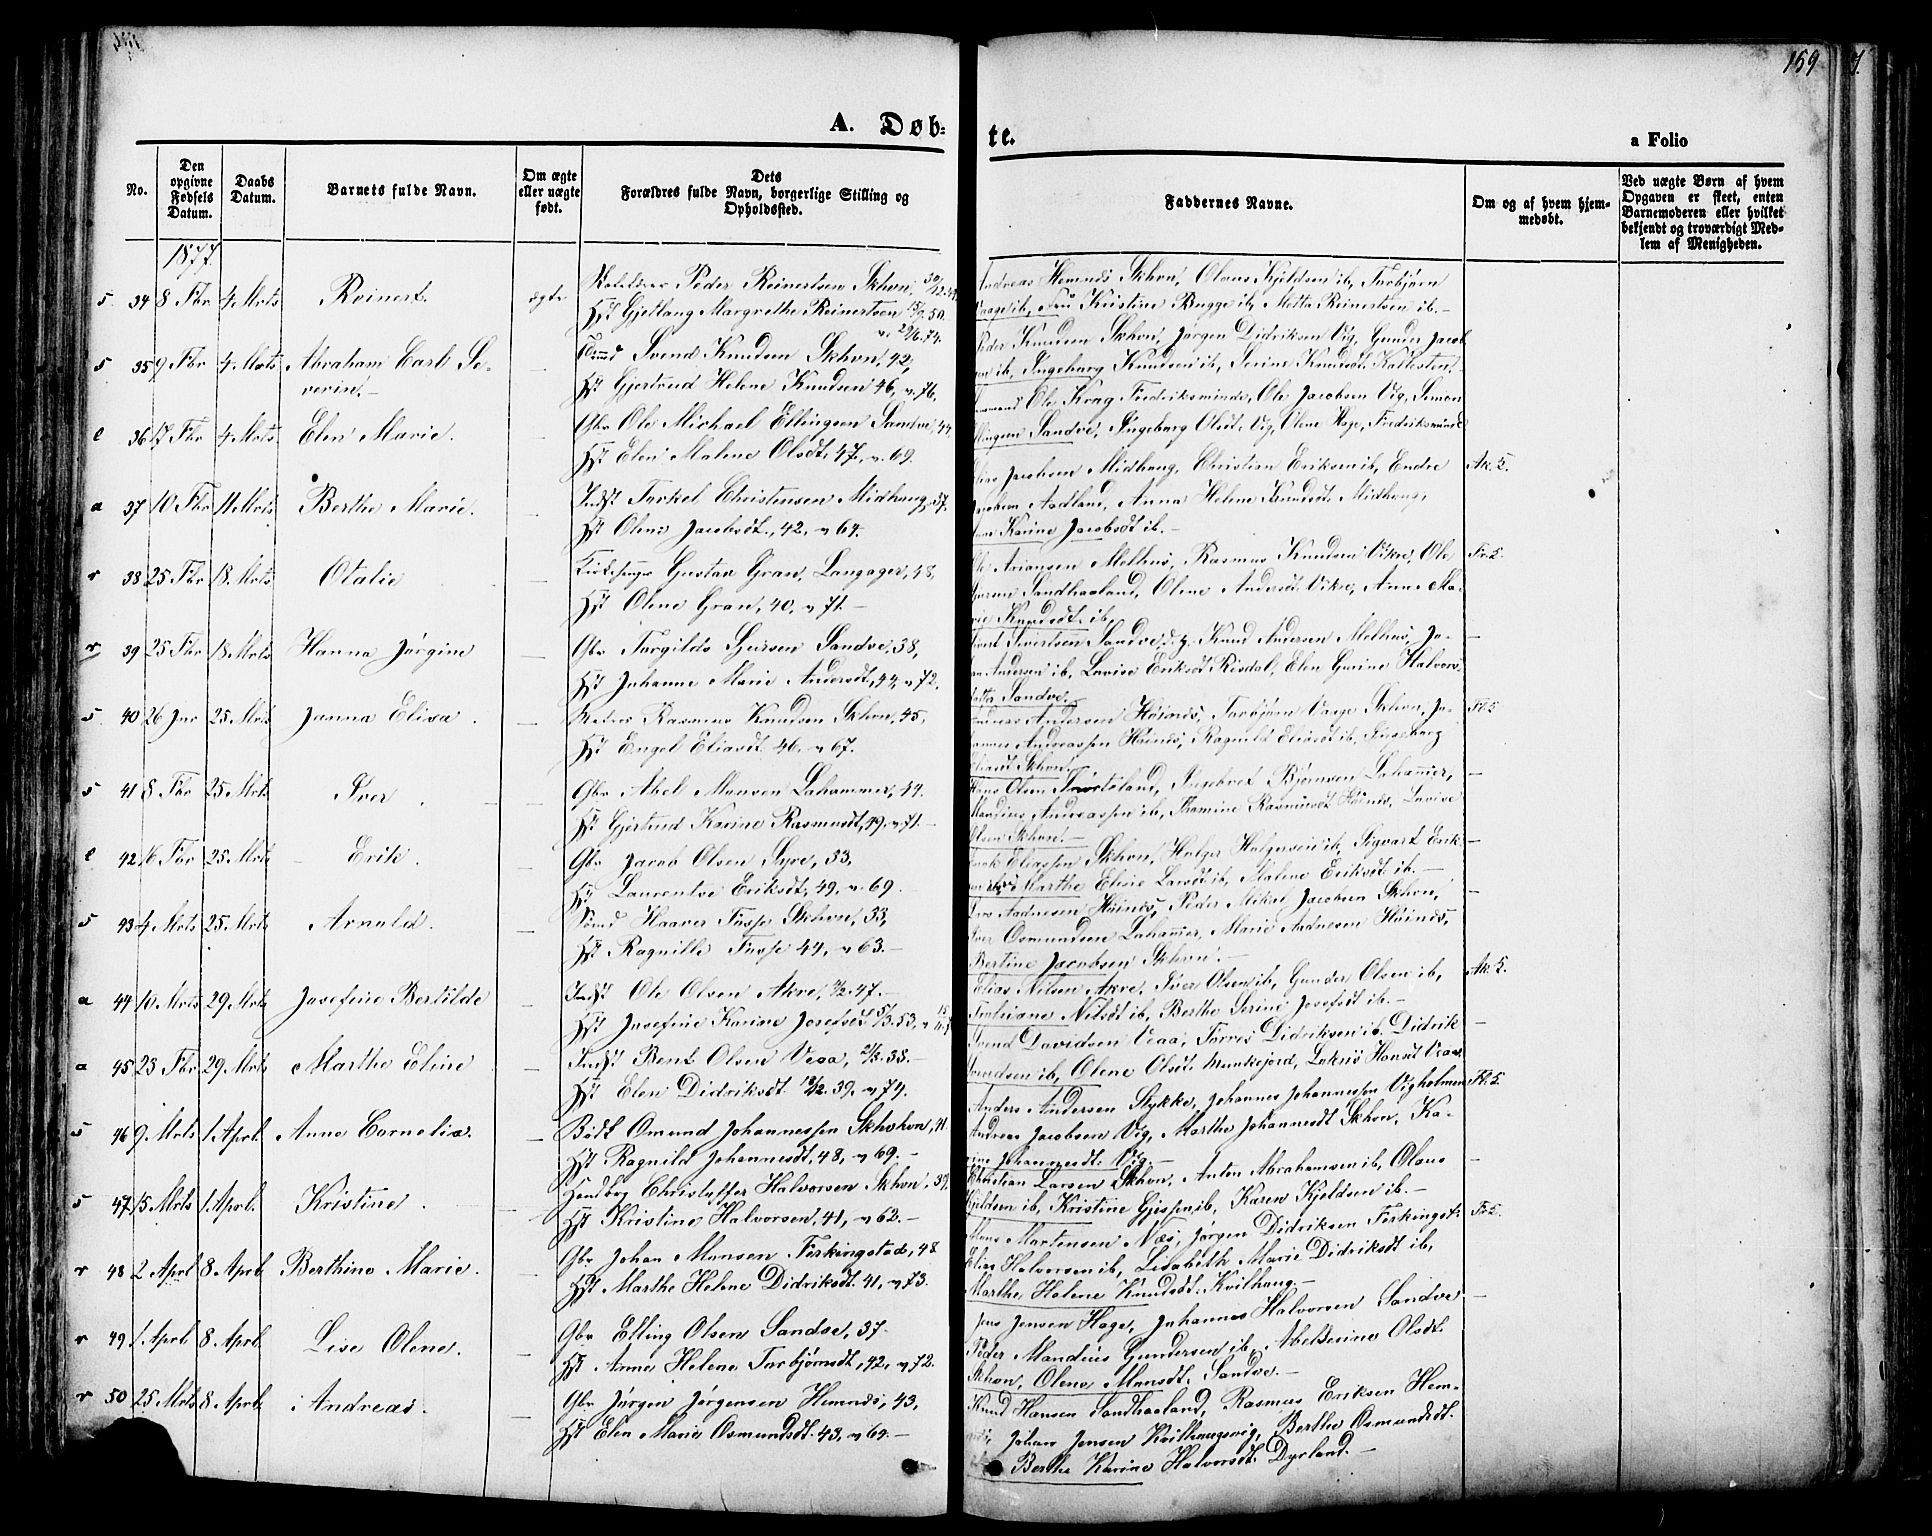 159
A. Døb=
te.
a Folio
No.
Den opgivne Fødsels Datum.
Daabs Datum.
Barnets fulde Navn.
Om ægte eller uægte født.
Dets Forældres fulde Navn, borgerlige Stilling og Opholdssted.
Faddernes Navne.
Om og af hvem hjem-medøbt.
Ved uægte Børn af hvem Opgaven er skeet, enten Barnemoderen eller hvilket bekjendt og troværdigt Med-lem af Menigheden.
1877.
5 34 8 Fbr 4 Mrts Reinert ægte Peder Reinertsen Skhvn
Hst Gjellaug Margrethe Reinertsen
Andreas Hemnes Skhvn, Olaus Kjeldsen ib, Torbjørn
Vaage ib, Fru Kristine Bugge ib, Metta Reinertsen ib.-
5 35 9 Fbr 4 Mrts Abraham Carl Se-
verin.- Svend Knudsen Skhvn, 42,
Hst Gjertrud Helene Knudsen 46, v. 76.
Peder Knudsen Skhvn, Jørgen Didriksen Vig, Gunder Jacob
ib, Ingeborg Knudsen ib, Serine Knudsdt
e 36 17 Fbr 4 Mrts Elen Marie. Gbr Ole Michael Ellingsen Sandve, 44,
Hst Elen Malene Olsdt, 47, v. 69.
Ole Krag Fredriksminde, Ole Jacobsen Vig, Simon
Ellingsen Sandve, Ingeborg Olsdt Vig, Olene Hage, Fredriksminde
a 37 10 Fbr 11 Mrts Berthe Marie. Indst Torkel Christensen Midhaug, 37.
Hst Olene Jacobsdt, 42, v 64.
Jacobsen Midhaug, Christian Eriksen ib, Endre Ak. S.
Jacobsen Aadland, Anna Helene Knudsdt Midhaug,
Karine Jacobsdt ib.-
r 38 25 Fbr 18 Mrts Otalie Kirkesanger Gustav Gran, Langager, 48,
Hst Olene Gran, 40, v 71.-
Ariansen Melhus, Rasmus Knudsen Vikre, Ole Fr. S.
Sandhaaland, Olene Andersdt Vikre, Anne Ma-
rie Knudsdt ib,
r 39 25 Fbr 18 Mrts Hanna Jørgine Gbr Torgilds Sjursen Sandve, 38,
Hst Johanne Marie Andersdt, 44, v 72.
Sandve, Knud Andersen Melhus, Jo-
Andersen ib, Lovise Eriksdt Risdal, Elen Gurine Halvors-
datter Sandve.
5 40 26 Jnr 25 Mrts Janna Elisa. Rasmus Knudsen Skhvn, 45,
Hst Engel Eliasdt 46, v 67.
Andersen Høines, Torbjørn Vaage Skhvn, Jo-
hannes Andreassen Høines, Ragnild Eliasdt ib, Ingeborg
Eliasdt Skhvn.
5 41 8 Fbr 25 Mrts Iver. Gbr Abel Monsen Lahammer, 44.
Hst Gjertrud Karine Rasmusdt, 49, v 71.-
Hans Olsen, Ingebret Bjørnsen Lahammer,
Mandius Andreassen ib, Rasmusdt Høines, Lovise
Olsen Skhvn.-
e 42 16 Fbr 25 Mrts Erik. Gbr Jacob Olsen Syre, 33,
Hst Laurentse Eriksdt, 49, v. 69.-
Eliassen Skhvn, Holger Holgersen ib, Sigvart Erik-
Marthe Eline Larsdt ib, Malene Eriksdt ib.-
5 43 4 Mrts 25 Mrts Arnold. Haaver Tusse Skhvn, 33,
Hst Ragnille Tusse 44, v 63.-
Aadnesen Høines, Peder Mikal Jacobsen Skhvn,
Iver Osmundsen Lahammer, Marie Aadnesen Høines,
Bertine Jacobsen Skhvn.-
a 44 10 Mrts 29 Mrts Josefine Bertilde Indst Ole Olsen Akre, 47.-
Hst Josefine Karine Josefsdt 5/3.53,
Elias Nilsen Akre, Iver Olsen ib, Gunder Olsen ib, Ak. S.
Nilsdt ib, Berthe Serine Josefsdt ib.-
a 45 23 Fbr 29 Mrts Marthe Eline Indst Bent Olsen Veaa, 38.-
Hst Elen Didriksdt 39, v 74.
Svend Davidsen Veaa, Torres Didriksen ib. Didrik
ib, Olene Olsdt Munkejord, Hansdt Veaa.
5 46 9 Mrts 1. Aprl. Anne Cornelia. Bødk Omund Johannessen Skhvn, 41.
Hst Ragnild Johannesdt, 48, v 69.-
Anders Andersen Stykke, Johannes Johannessen Vigholmen
Andreas Jacobsen Vig, Marthe Johannesdt Skhvn, Ka-
rine Johannesdt. Vig.-
5 47 15 Mrts 1. Aprl. Kristine. Handbog Christoffer Halvorsen Skhvn, 39.
Hst Kristine Halvorsen, 41, v 62.-
Christian Larsen Skhvn, Anton Abrahamsen ib, Olaus
Kjeldsen ib, Kristine Gjessen ib, Karen Kjeldsen ib.-
r 48 2 Aprl 8 Aprl Berthine Marie. Gbr Johan Monsen Ferkingstad, 48
Hst Marthe Helene Didriksdt. 41, v 73.
Mons Mortensen Næs, Jørgen Didriksen Ferkingst. Fr. S.
Elias Halvorsen ib, Lisabeth Marie Didriksdt ib,
Marthe Helene Knudsdt. Kvilhaug.-
r 49 1. Aprl 8 Aprl. Lise Olene. Gbr Elling Olsen Sandve, 37.
Hst Anne Helene Torbjørnsdt, 42, v 72.
Jens Jensen Hage, Johannes Halvorsen Sandve
Peder Mandius Gundersen ib, Abelserine Olsdt.
Skhvn, Olene Monsdt. Sandve.-
r 50 25 Mrts 8 Aprl. Andreas. Gbr Jørgen Jørgensen Hemnes, 43,
Hst Elen Marie Osmundsdt. 43, v 69.-
Knud Hansen Sandhaaland, Rasmus Eriksen Hem-
nes, Johan Jensen Kvilhaugsvig, Berthe Osmundsdt.
Berthe Karine Halvorsdt. Dyrland.-